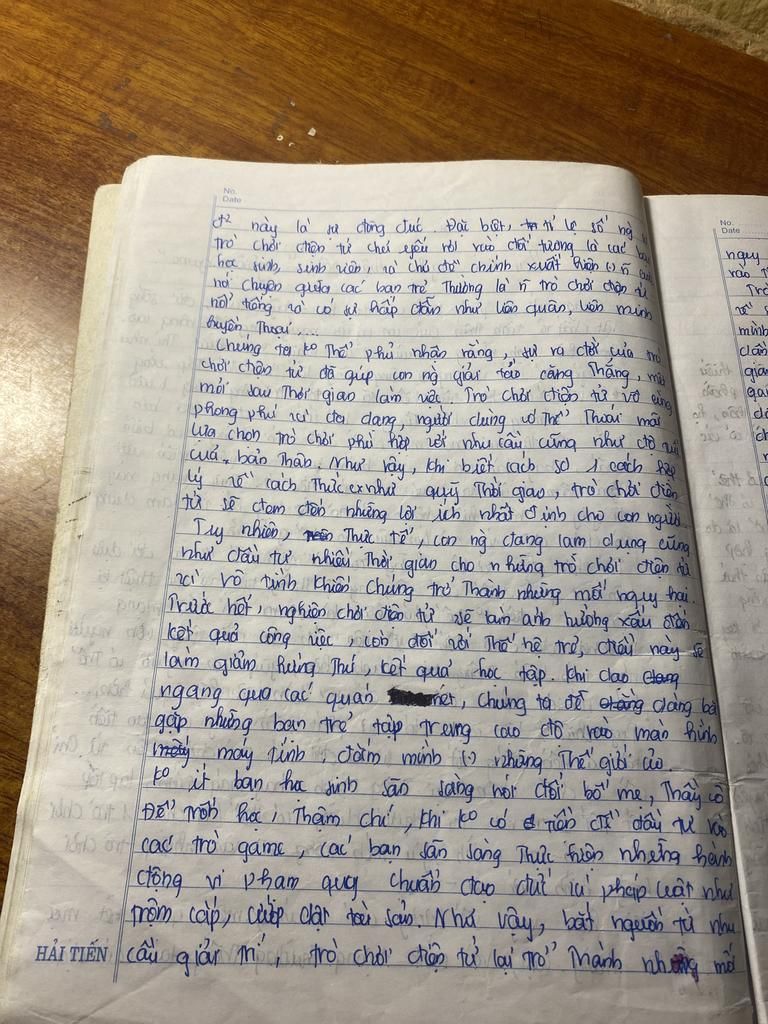 No.
Date
đ² này là sự đông đúc. Đặc biệt, tỉ lệ số ng
trò chơi điện tử chủ yếu rơi vào đối tượng là các
học sinh, sinh viên, và chủ đề chính xuất hiện (-) ~
nói chuyện giữa các bạn trẻ thường là ~ trò chơi điện tử
nổi tiếng và có sự hấp dẫn như liên quân, liên minh
huyền thoại ....
Chúng ta ko thể phủ nhận rằng, sự ra đời của trò
chơi điện tử đã giúp con ng giải tảo căng thẳng, mệt
mỏi sau thời gian làm việc. Trò chơi điện tử vô cùng
phong phú và đa dạng, người dùng có thể thoải mái
lựa chọn trò chơi phù hợp với nhu cầu cũng như độ tuổi
của bản thân. Như vậy, khi biết cách sd 1 cách hợp
lý về cách thức cx như quỹ thời giao, trò chơi điện
tử sẽ đem đến những lời ích nhất định cho con người.
Tuy nhiên, thực tế, con ng đang lạm dụng cũng
như đầu tư nhiều thời gian cho những trò chơi điện tử
và vô tình khiến chúng trở thành những mối nguy hại.
Trước hết, nghiện chơi điện tử sẽ làm ảnh hưởng xấu đến
kết quả công việc, còn đối với thế hệ trẻ, điều này sẽ
làm giảm hứng thú, kết quả học tập. Khi dạo
ngang qua các quán net, chúng ta dễ dàng bắt
gặp những bạn trẻ tập trung cao độ vào màn hình
máy tính, đắm mình (-) những thế giới ảo.
ko ít bạn học sinh sẵn sàng nói dối bố mẹ, thầy cô
để trốn học, thậm chí, khi ko có tiền để đầu tư vào
các trò game, các bạn sẵn sàng thực hiện những hành
động vi phạm quy chuẩn đạo đức và pháp luật như
trộm cắp, cướp dật tài sản. Như vậy, bắt nguồn từ nhu
cầu giải trí, trò chơi điện tử lại trở thành những mối
HẢI TIẾN
No.
Date
nguy
vào
Trò
về
minh
dẫn